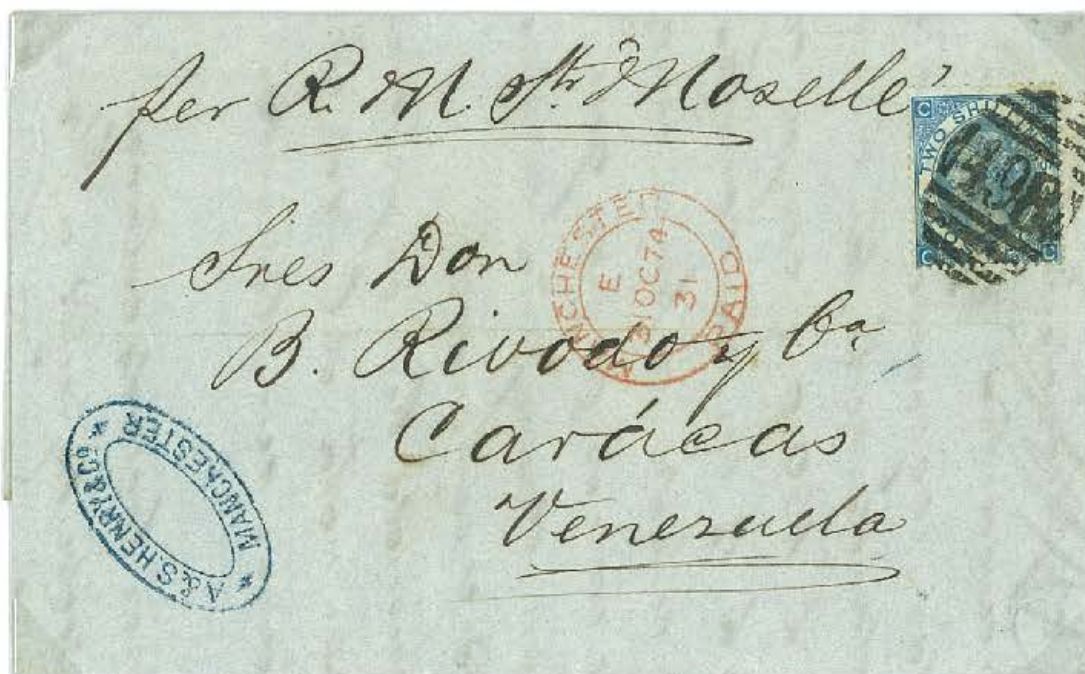 per R. M. Str "Moselle"
TWO SHILLIN
C
C
C
498
Sres Don
B. Rivodo y Ca
Carácas
Venezuela
MANCHESTER
E
31OC74
31
PAID
A.&S. HENRY & Co
* MANCHESTER *